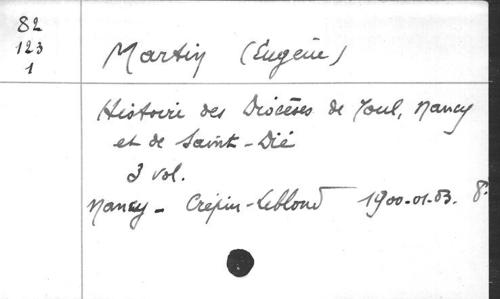 82
123
1
Martin (Eugène)
Histoire des Diocèses de Toul, Nancy
et de Saint-Dié
3 vol.
Nancy - Crépin-Leblond 1900-01-03. 8°